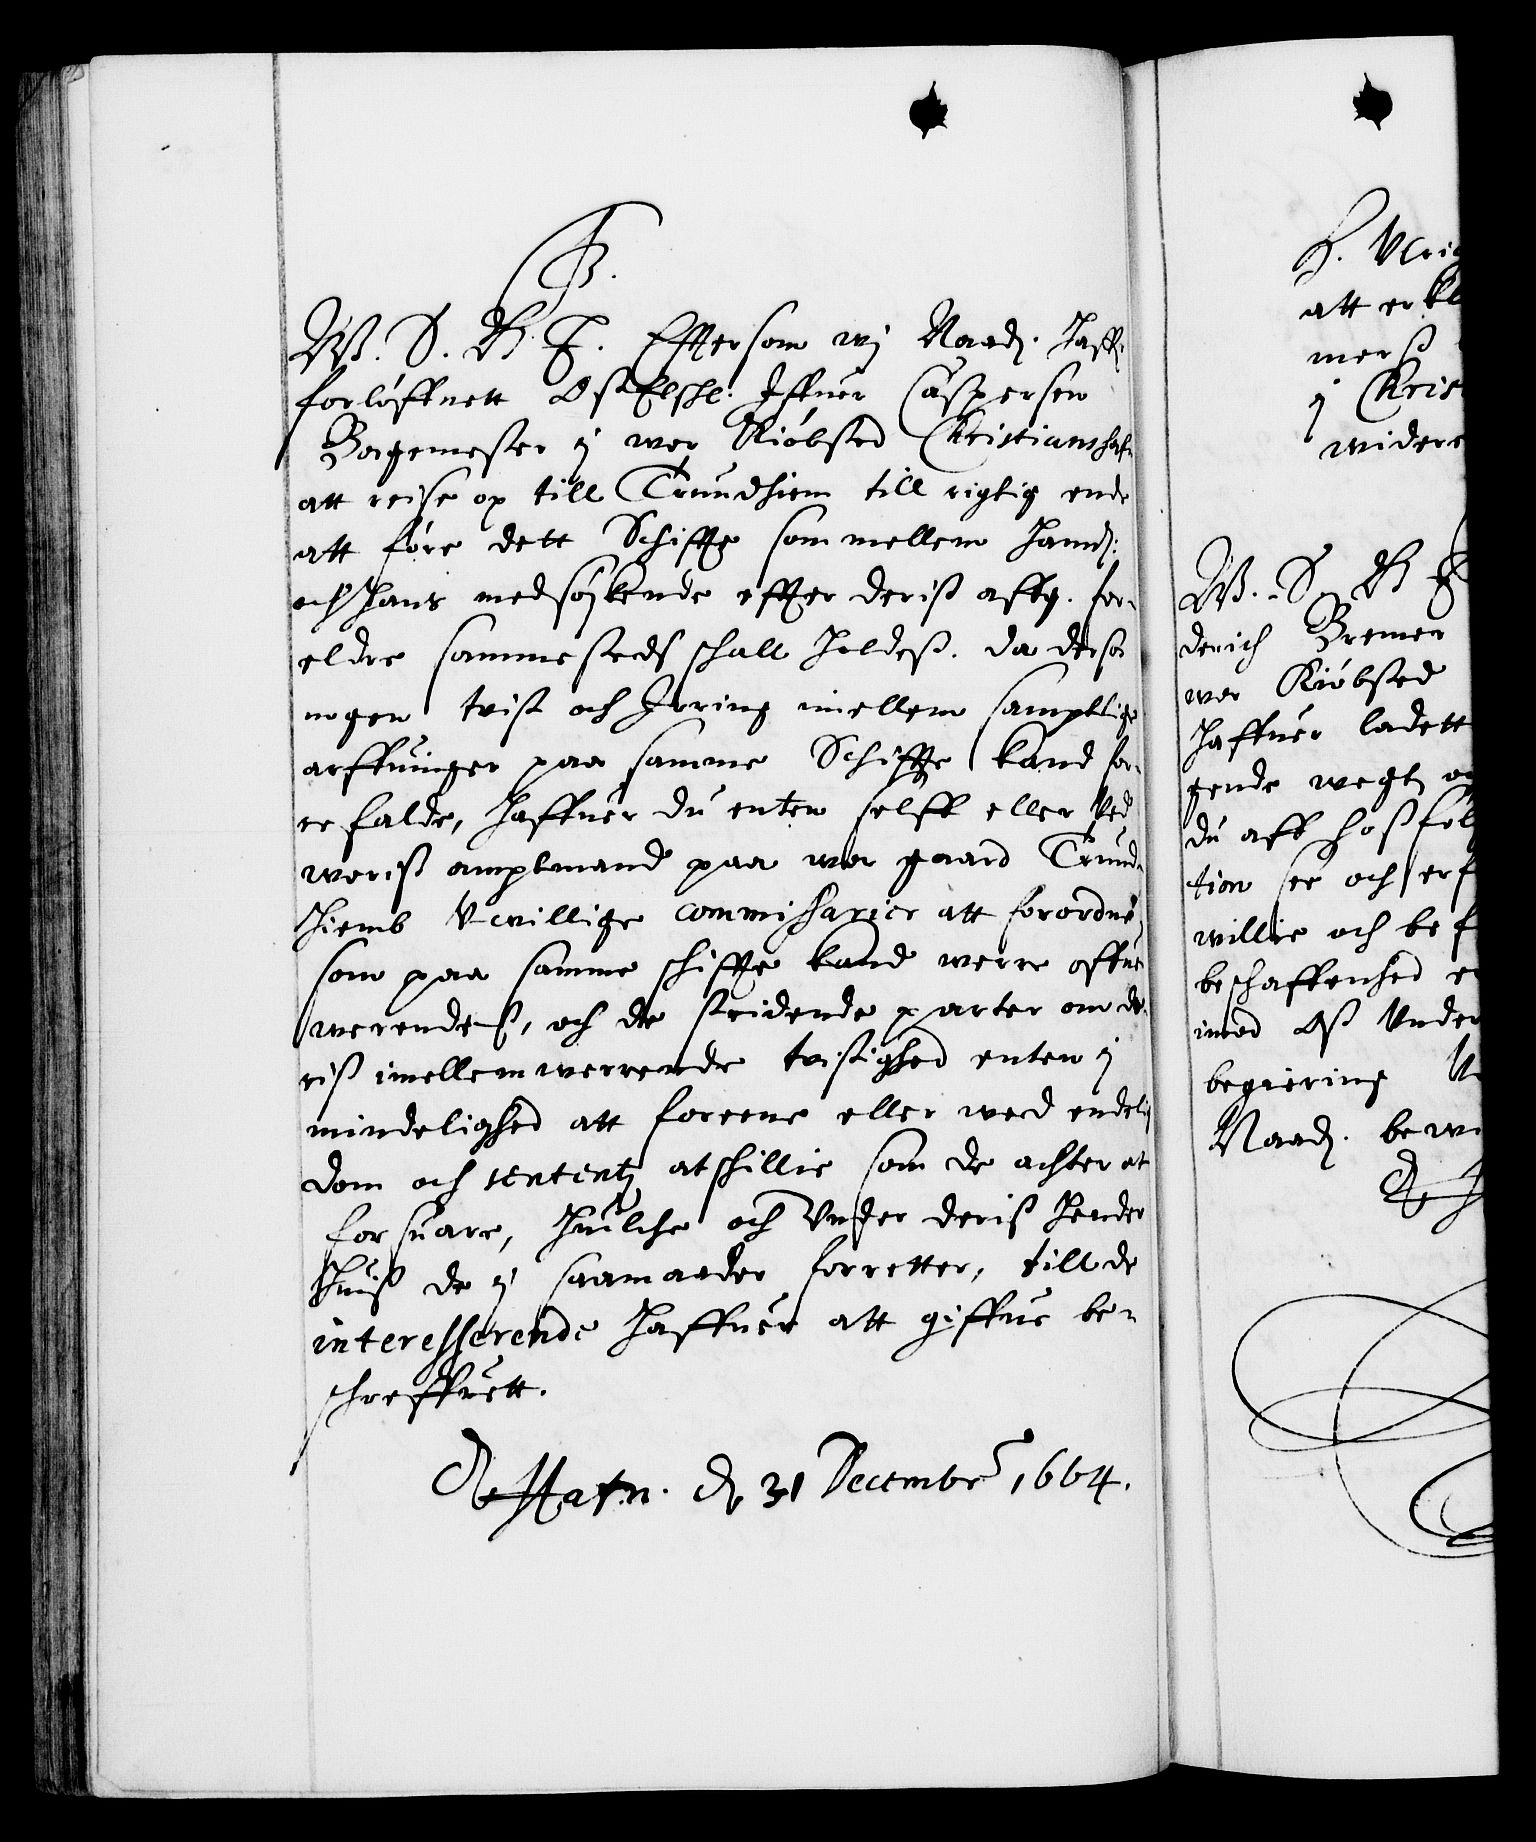 W. S. G. F. Effterson wj Naadj. Haffr
forløffuett Oß Elschl: Iffuer Caspersen
Borgemester ij wor Kiøbsted Christianshafn
att reise op till Trundhiem till rigtig ende
att føre dett Schiffte som mellem hannd:
och hans medsøskende effter deriß affg. for-
eldre sammesteds schall holdeß. da dersom
nogen tvist och Irring imellem samptlige
arffuinger paa samme Schiffte kand for-
re falde, haffuer du enten selff eller ved
woriß amptmand paa wor gaard Trund-
hiemb Uwillige commissarier att forordne,
som paa samme schiffte kand werre offuer
werendeß, och de stridende parter om de-
riß imellem werrende tvistighed enten ij
mindelighed att foreene eller med endelig
dom och sententz atskillie som de achter at
forsuare, huilche och Under deriß hender
huiß de ij saamaader forretter, till de
interesserende haffuer att giffue be-
schreffuett.
Hafn. d. 31 Decembr 1664.
H. Ulrig
att erkl
merß
ij Chris
widere
W. S. G. F.
derich Bremer
wor Kiøbsted
haffuer ladett
gende wegt og
du aff hoßføl
tion see och erf
willie och bef
beschaffenhed e
imod Oß Under
begiering
Naadj. bewi